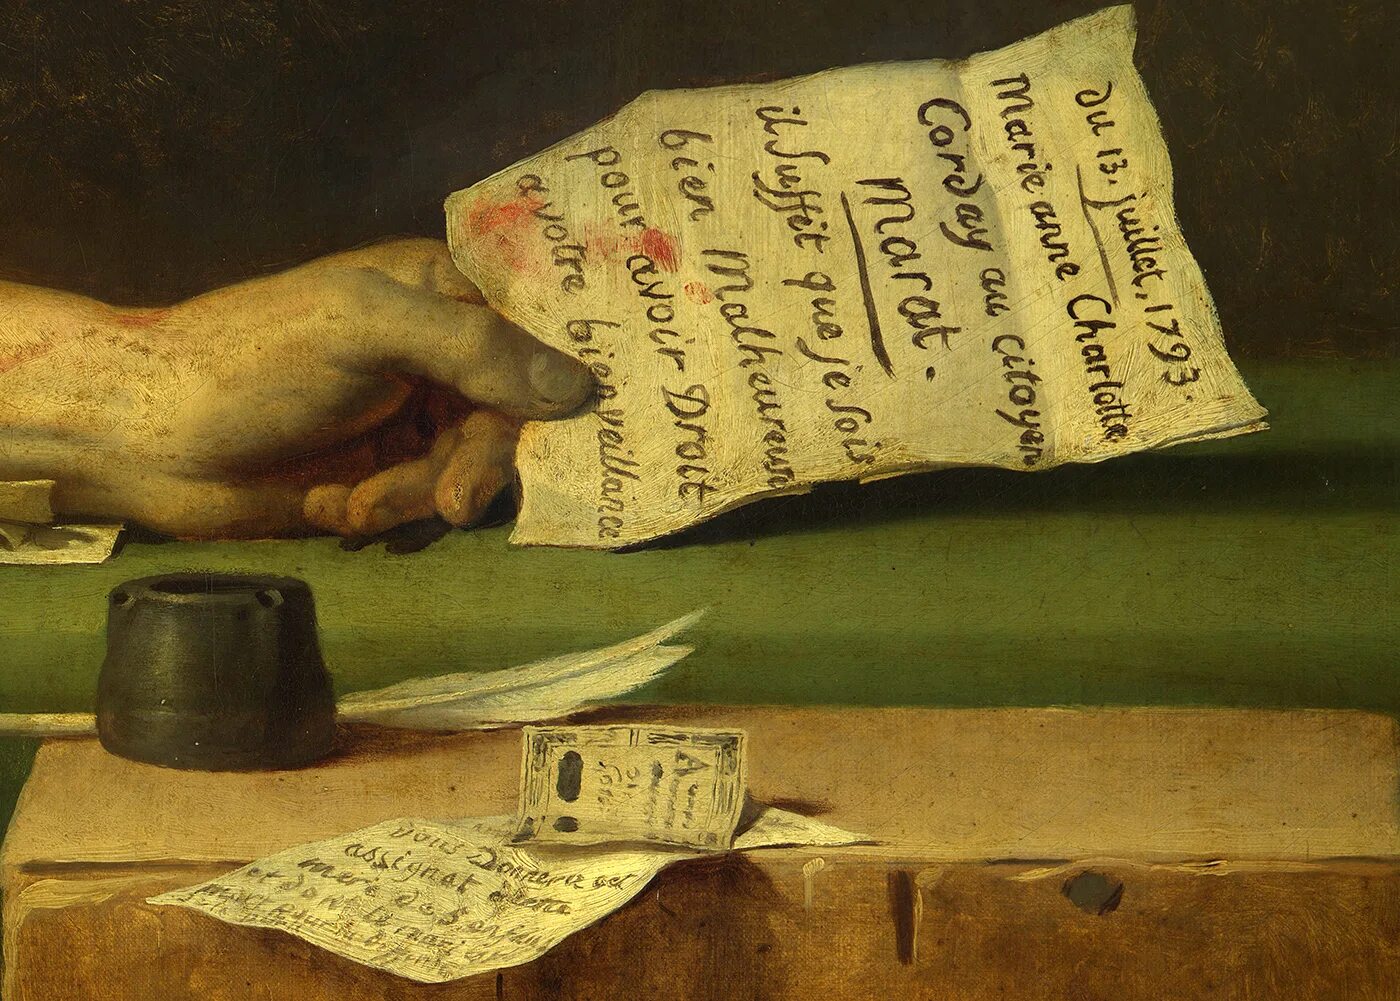 du 13. juillet, 1793.
Marie anne Charlotte
Corday au citoyen
Marat.
il suffit que je sois
bien Malheureuse
pour avoir Droit
a votre bienveillance
vous Donnerez cet
assignat à cette
mere de